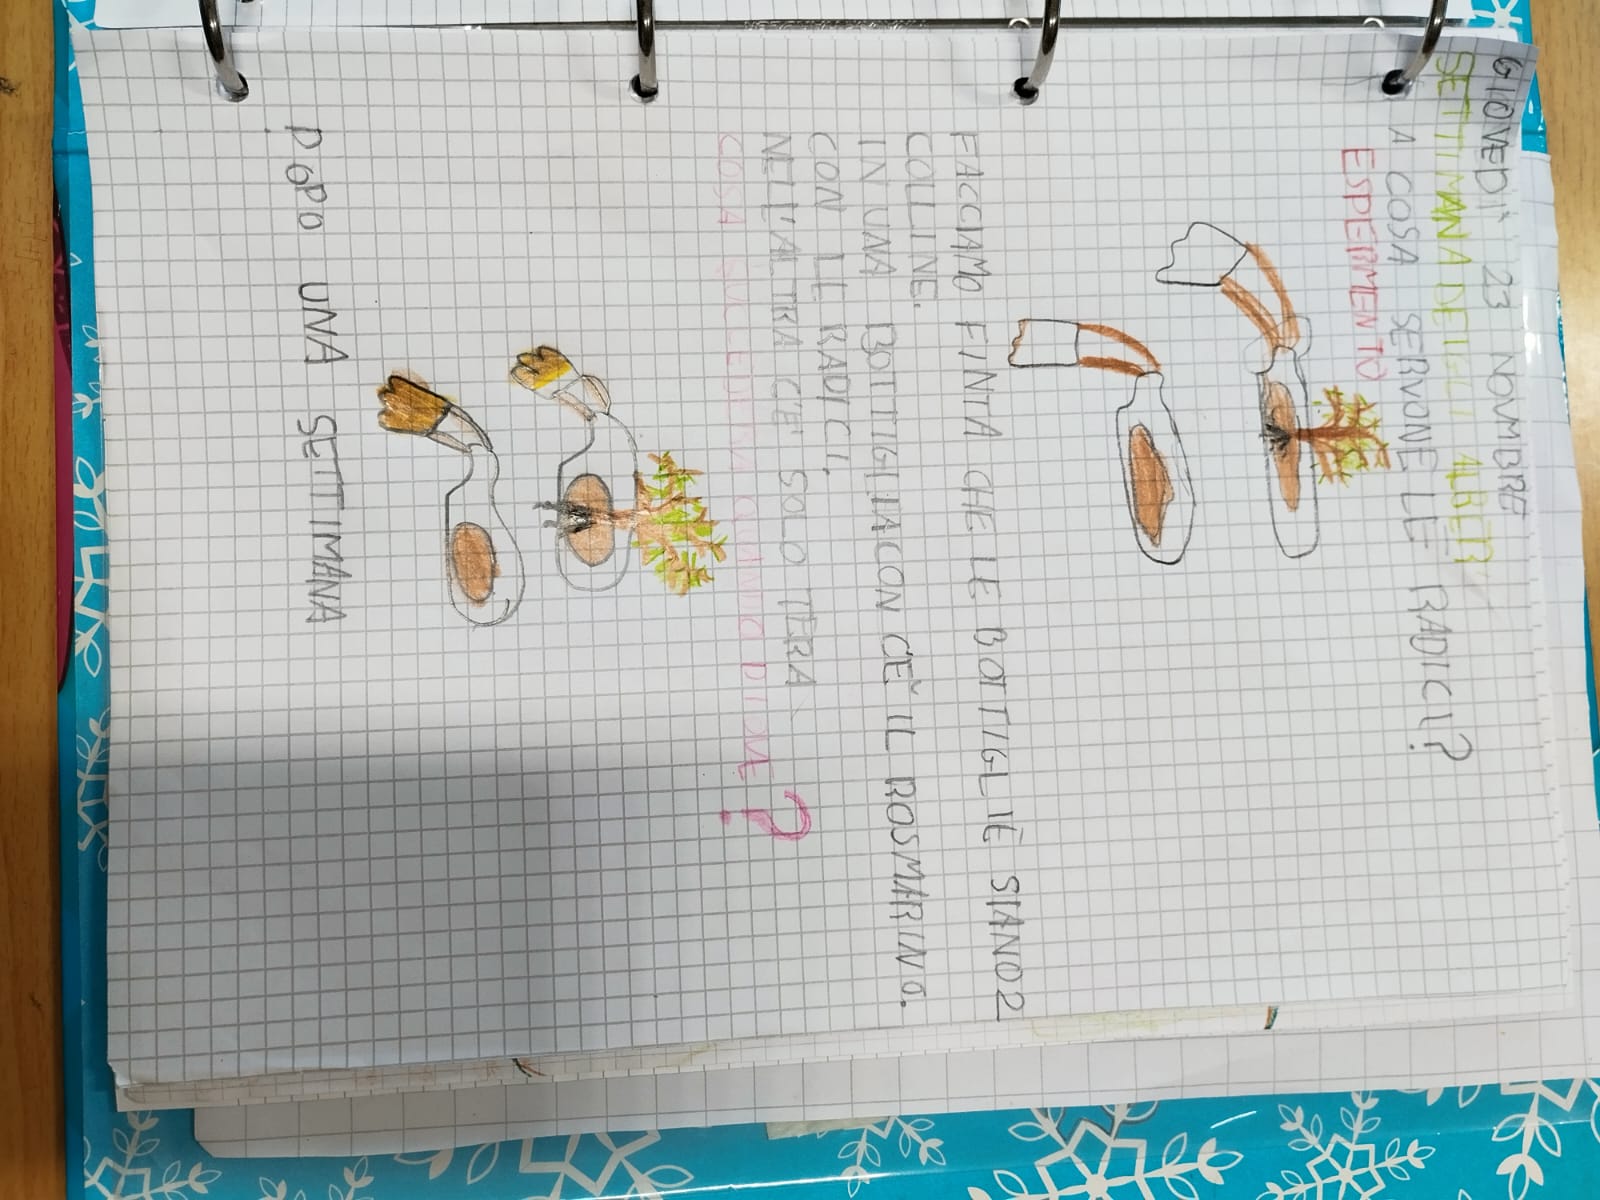 GIOVEDI' 23 NOVEMBRE
SETTIMANA DEIGLI ALBERI
A COSA SERVONE LE RADICI?
ESPERIMENTO
FACCIAMO FINTA CHE LE BOTTIGLIE SIANO 2
COLLINE.
IN UNA BOTTIGLIACON CE' IL ROSMARINO.
CON LE RADICI,
NELL'ALTRA C'E' SOLO TERA
COSA SUCCEDERA QUANDO PIOVE?
DOPO UNA SETTIMANA